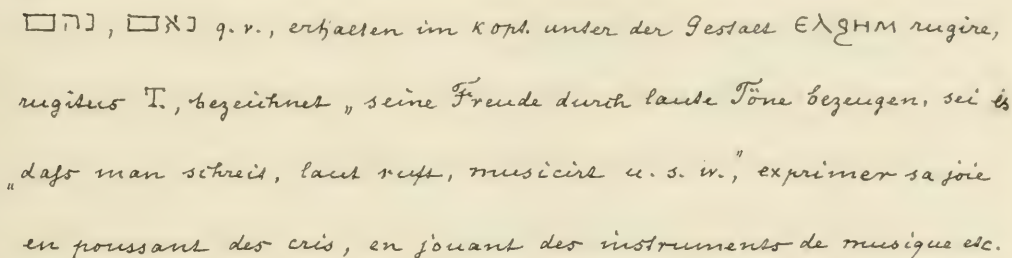 נהם, נאם q. v., erhalten im kopt. unter der Gestalt ⲈⲖϨⲎⲘ rugire,
rugitus T., bezeichnet „ seine Freude durch laute Töne bezeugen, sei es
„dass man schreit, laut ruft, musicirt u. s. w.," exprimer sa joie
en poussant des cris, en jouant des instruments de musique etc.